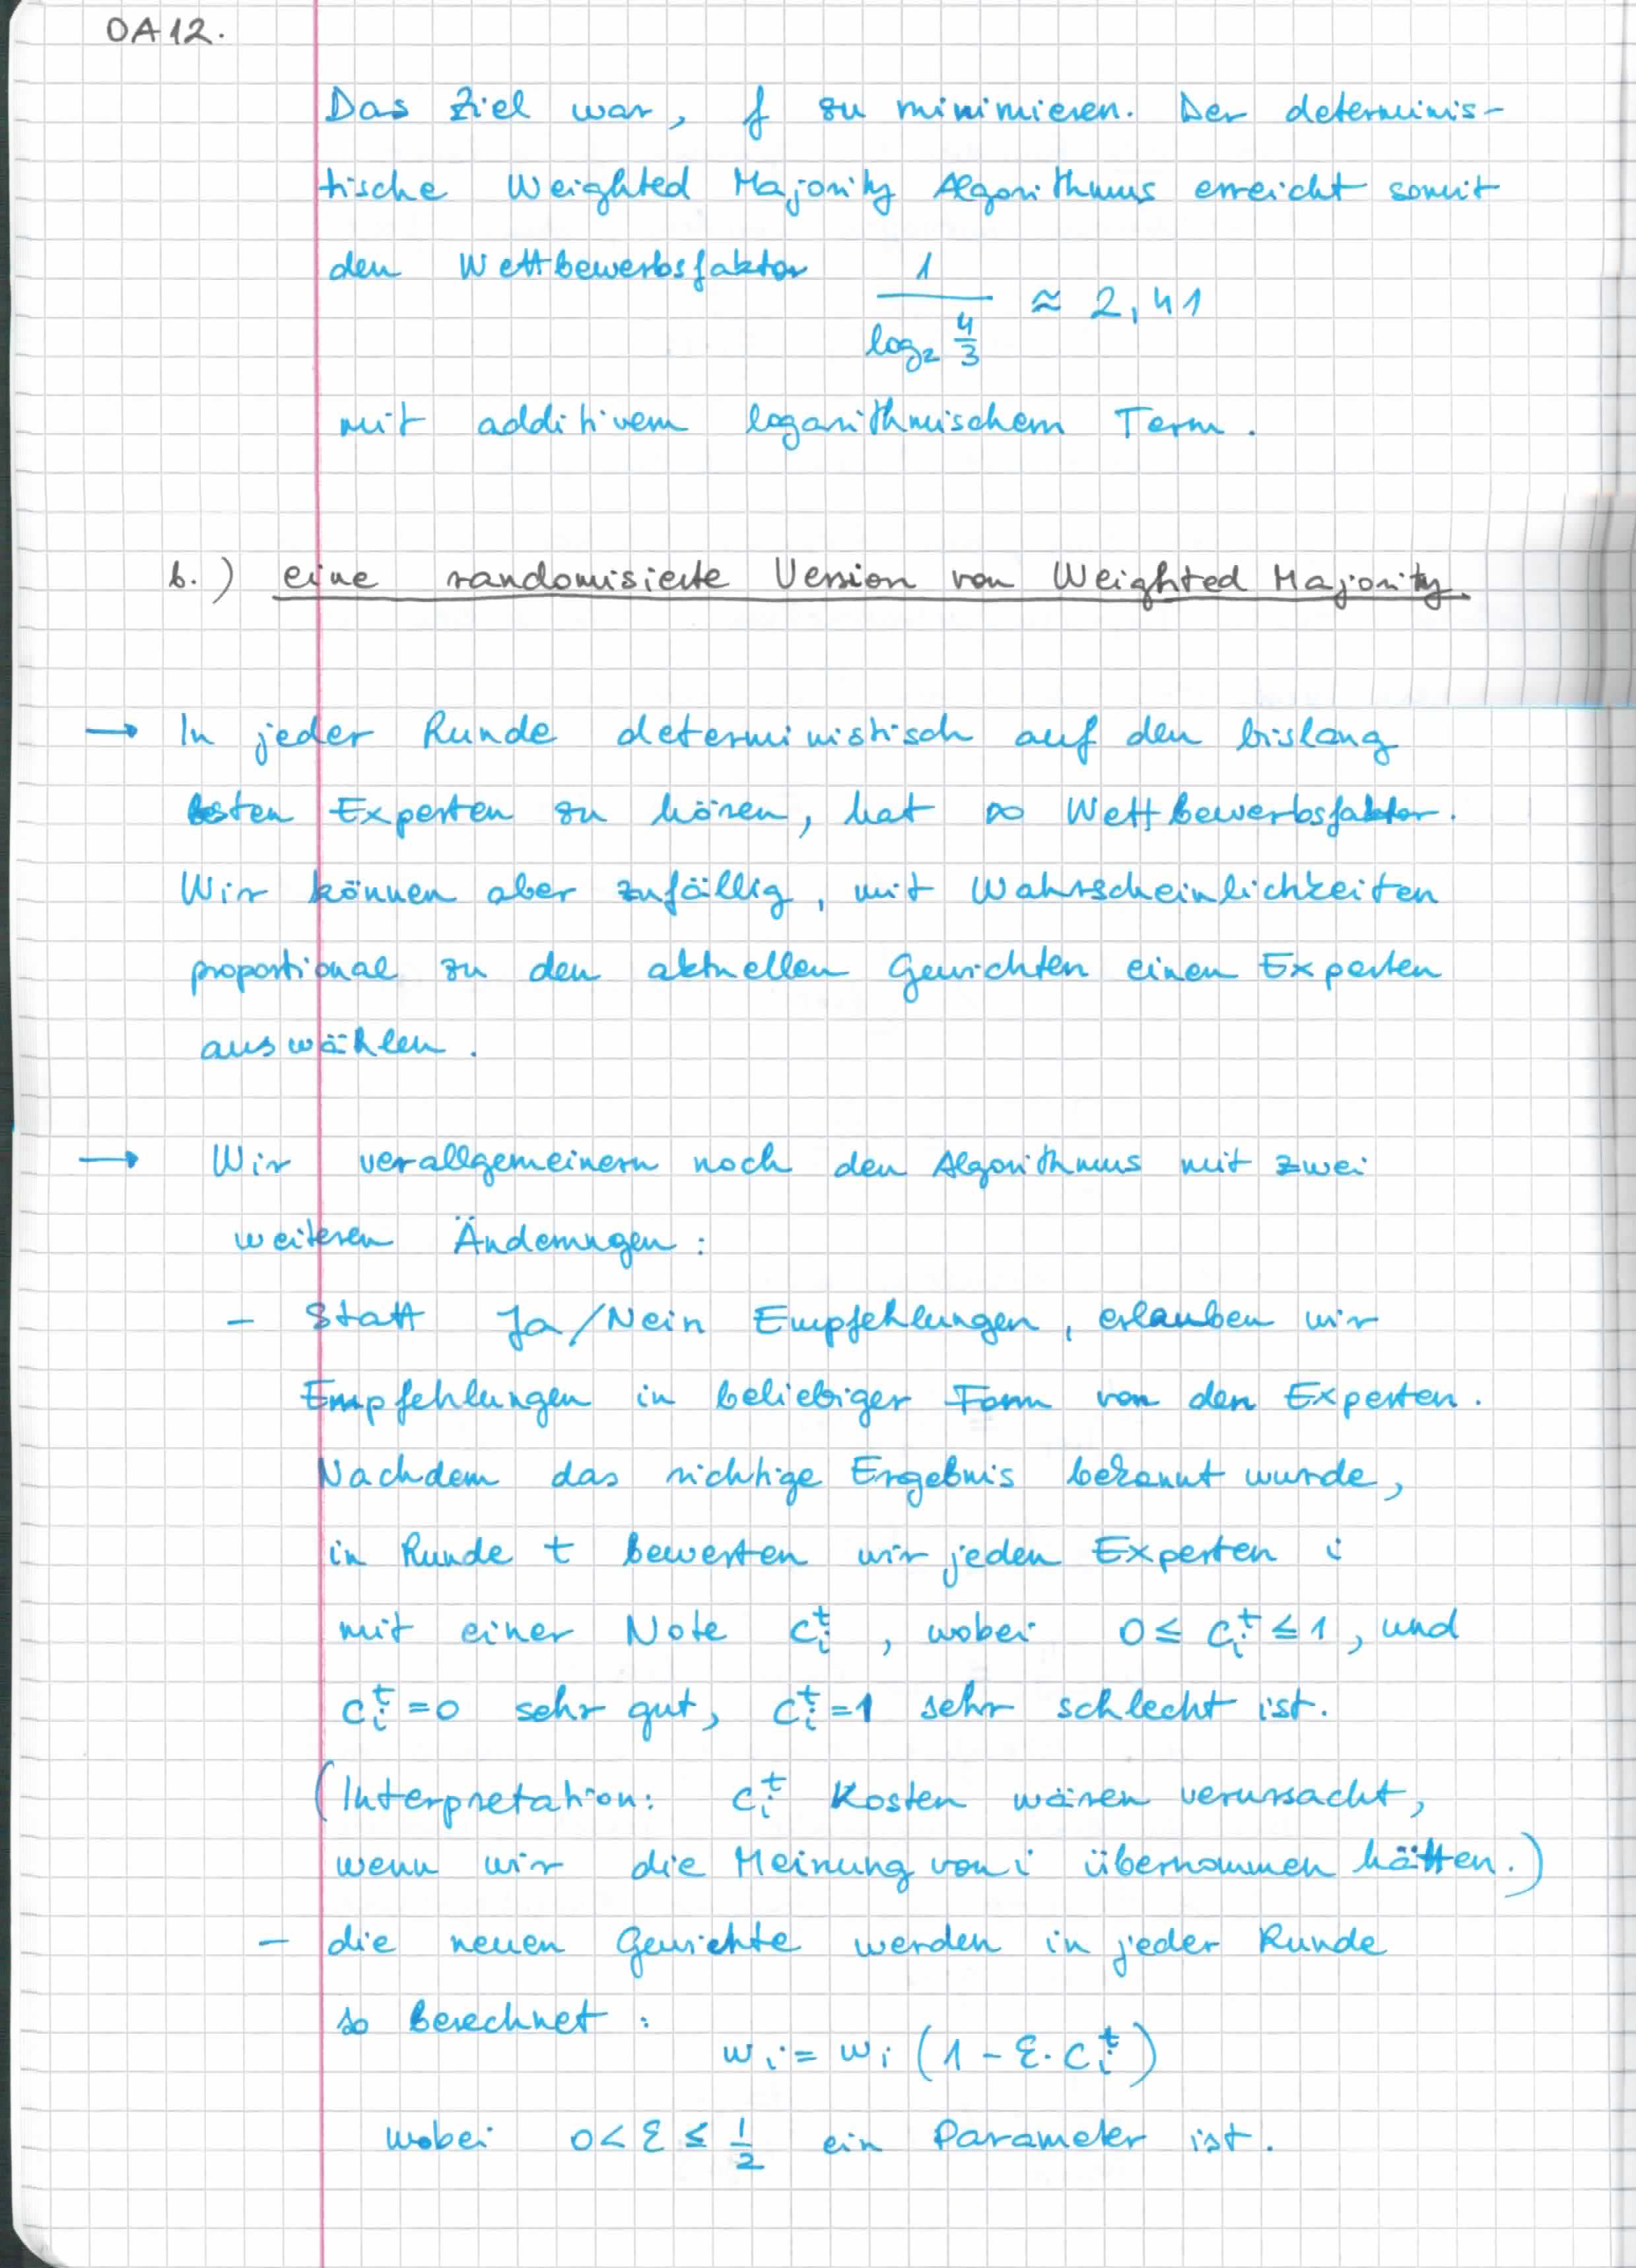 OA12.
Das Ziel war, f zu minimieren. Der determinis-
tische Weighted Majority Algorithmus erreicht somit
den Wettbewerbsfaktor 1 / log₂ 4/3 ≈ 2,41
mit additivem logarithmischem Term.
b.) eine randomisierte Version von Weighted Majority.
→ In jeder Runde deterministisch auf den bislang
besten Experten zu hören, hat ∞ Wettbewerbsfaktor.
Wir können aber zufällig, mit Wahrscheinlichkeiten
proportional zu den aktuellen Gewichten einen Experten
auswählen.
→ Wir verallgemeinern noch den Algorithmus mit zwei
weiteren Änderungen:
- Statt Ja/Nein Empfehlungen, erlauben wir
Empfehlungen in beliebiger Form von den Experten.
Nachdem das richtige Ergebnis bekannt wurde,
in Runde t bewerten wir jeden Experten i
mit einer Note cᵢᵗ, wobei 0 ≤ cᵢᵗ ≤ 1, und
cᵢᵗ=0 sehr gut, cᵢᵗ=1 sehr schlecht ist.
(Interpretation: cᵢᵗ Kosten wären verursacht,
wenn wir die Meinung von i übernommen hätten.)
- die neuen Gewichte werden in jeder Runde
so berechnet:
wᵢ := wᵢ (1 - ε · cᵢᵗ)
wobei 0 < ε ≤ 1/2 ein Parameter ist.